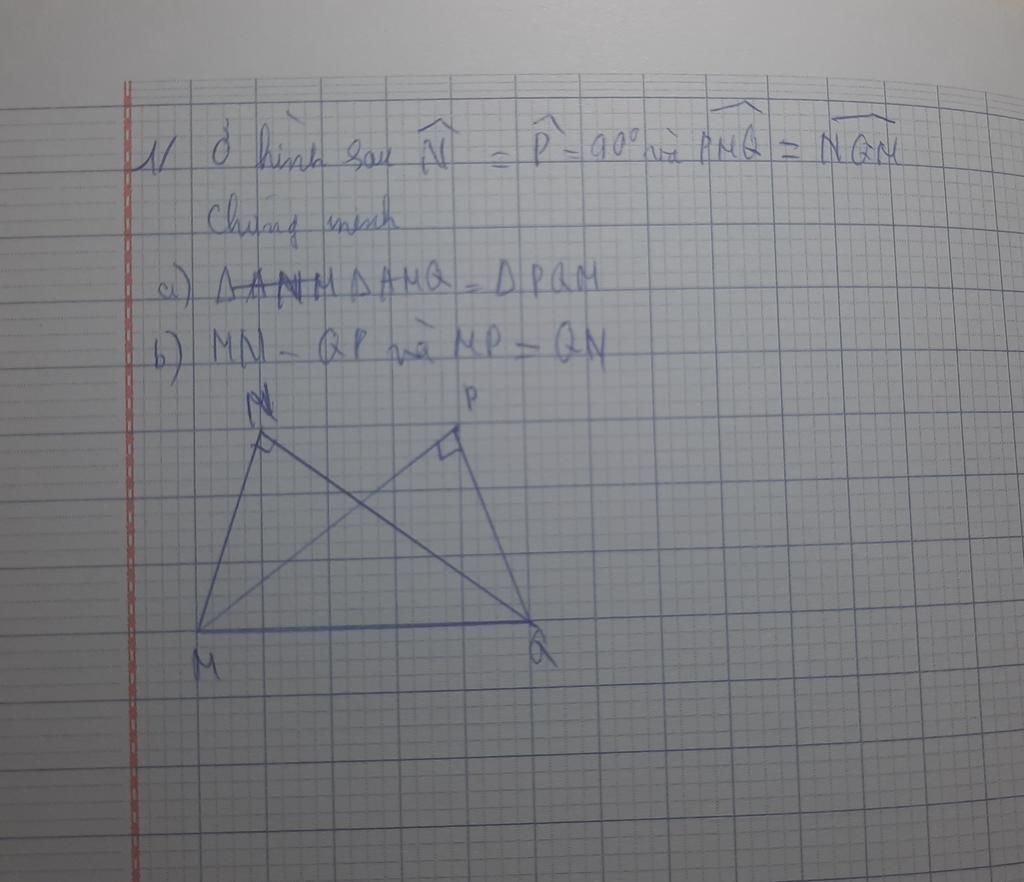 1/ Ở hình sau N̂ = P̂ = 90° và PMQ = NQM
Chứng minh
a) Δ ANM Δ AMQ = Δ PQM
b) MN = QP và MP = QN
N P
M Q